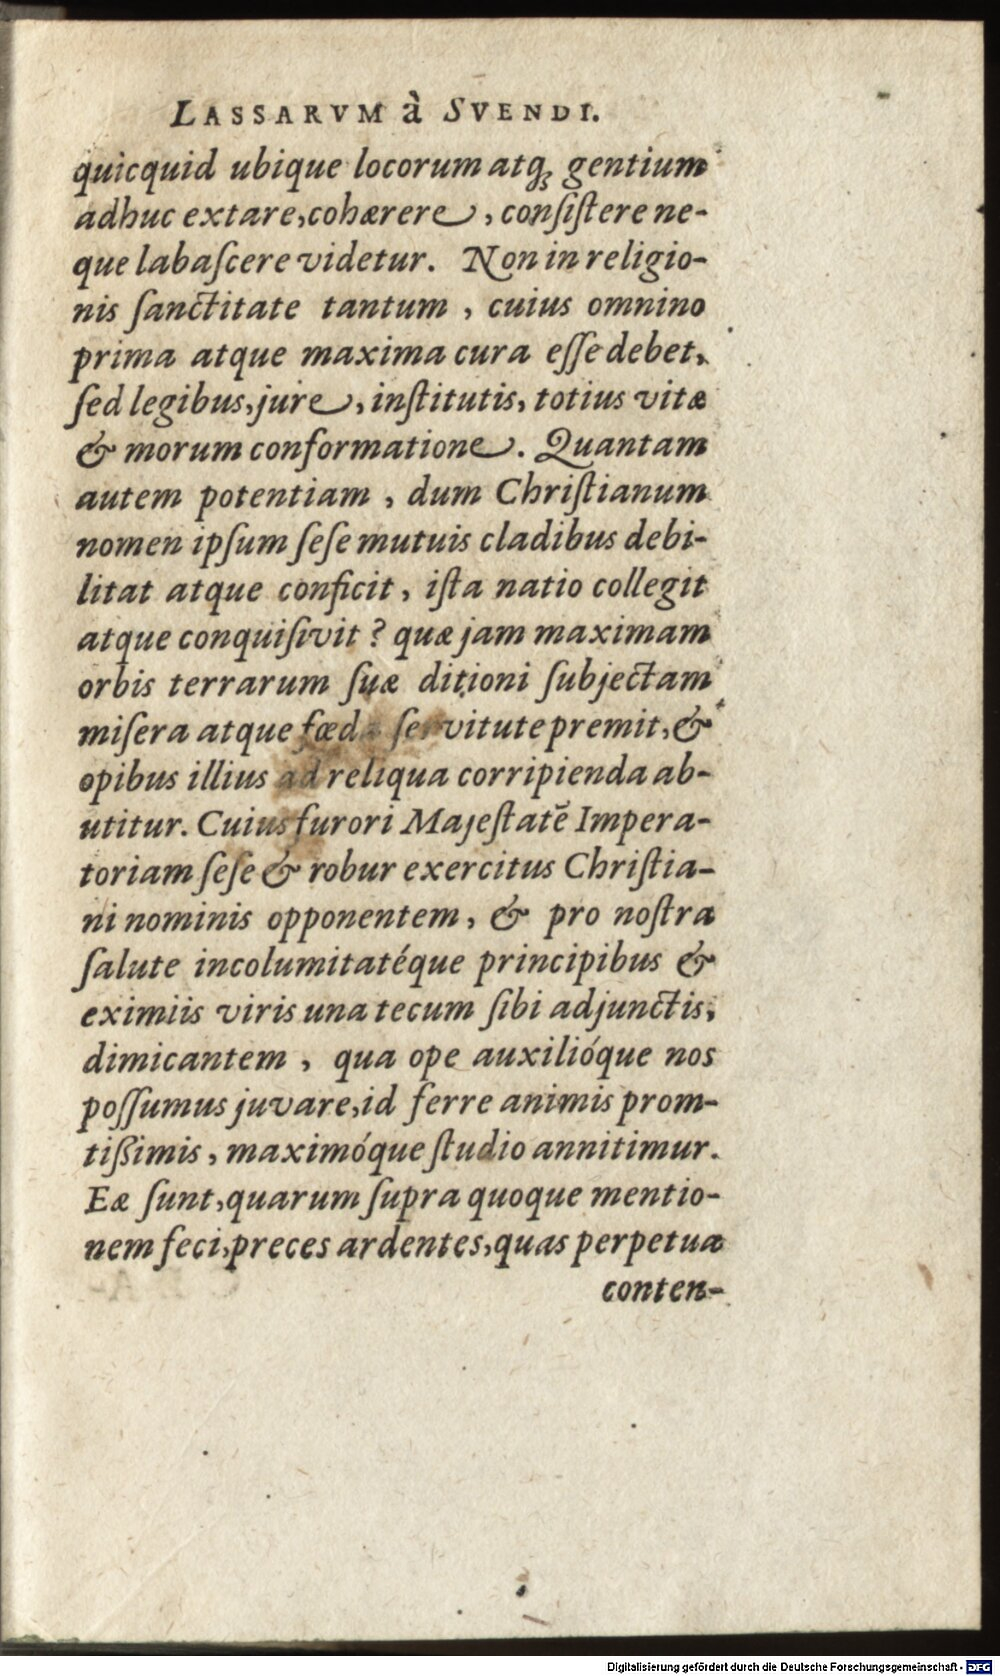 LASSARVM à SVENDI.
quicquid ubique locorum atq́ꝫ gentium
adhuc extare, cohærere, conſiſtere ne-
que labaſcere videtur. Non in religio-
nis ſanctitate tantum, cuius omnino
prima atque maxima cura eſſe debet,
ſed legibus, jure, inſtitutis, totius vitæ
& morum conformatione. Quantam
autem potentiam, dum Chriſtianum
nomen ipſum ſeſe mutuis cladibus debi-
litat atque conficit, iſta natio collegit
atque conquiſivit? quæ jam maximam
orbis terrarum ſuæ ditioni ſubjectam
miſera atque fœda ſervitute premit, &
opibus illius ad reliqua corripienda ab-
utitur. Cuius furori Majeſtatē Impera-
toriam ſeſe & robur exercitus Chriſtia-
ni nominis opponentem, & pro noſtra
ſalute incolumitatéque principibus &
eximiis viris una tecum ſibi adjunctis,
dimicantem, qua ope auxilióque nos
poſſumus juvare, id ferre animis prom-
tißimis, maximóque ſtudio annitimur.
Eæ ſunt, quarum ſupra quoque mentio-
nem feci, preces ardentes, quas perpetua
conten-
Digitalisierung gefördert durch die Deutsche Forschungsgemeinschaft - DFG